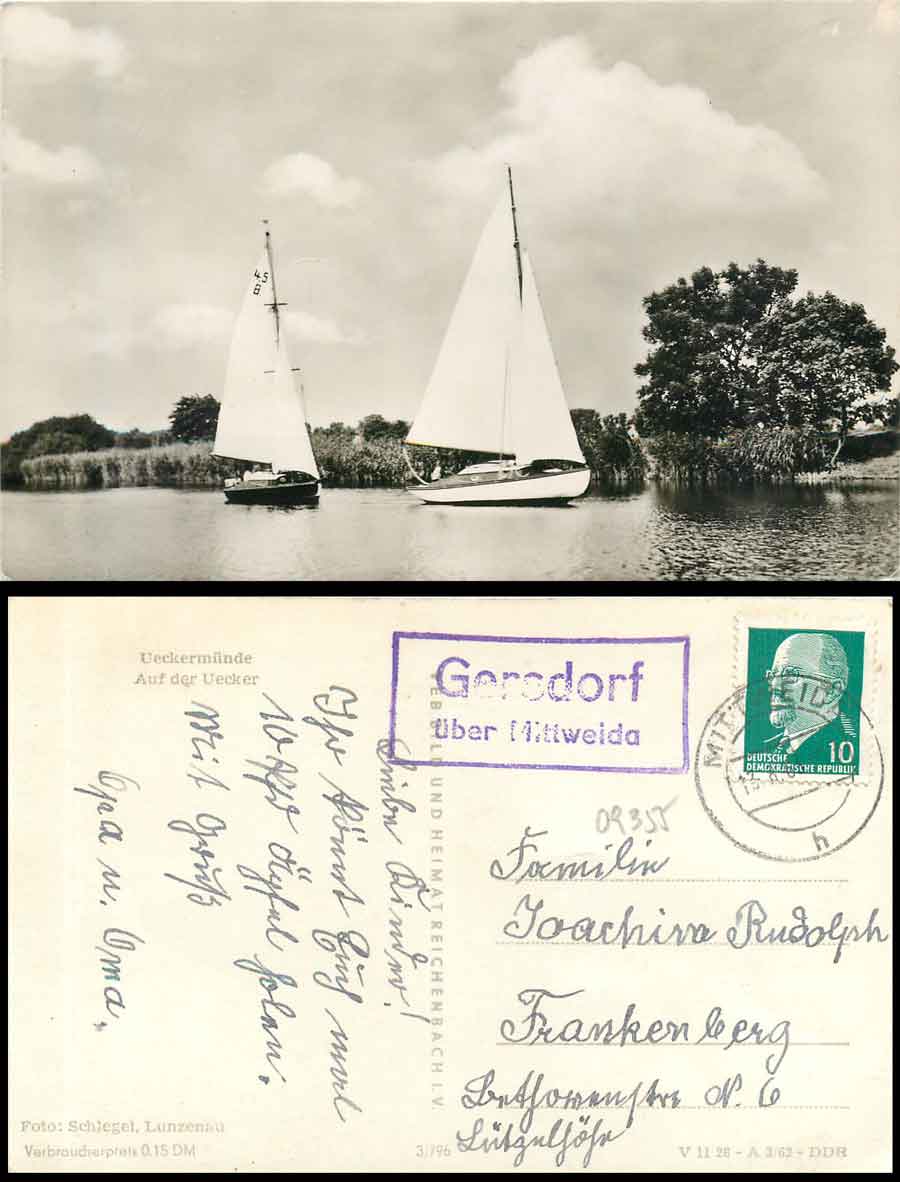 45
B
Ueckermünde
Auf der Uecker
Gersdorf
über Mittweida
MITTWEIDA
h
10
DEUTSCHE
DEMOKRATISCHE REPUBLIK
09355
Liebe Kinder!
Ihr könnt Euch mal
Äpfel holen.
Mit Gruß
Opa u. Oma.
VEB BILD UND HEIMAT REICHENBACH I. V.
Familie
Joachim Rudolph
Frankenberg
Bethovenstre N. 6
Lützelhöhe
Foto: Schlegel, Lunzenau
Verbraucherpreis 0.15 DM
3/796
V 11 28 - A 3/62 - DDR